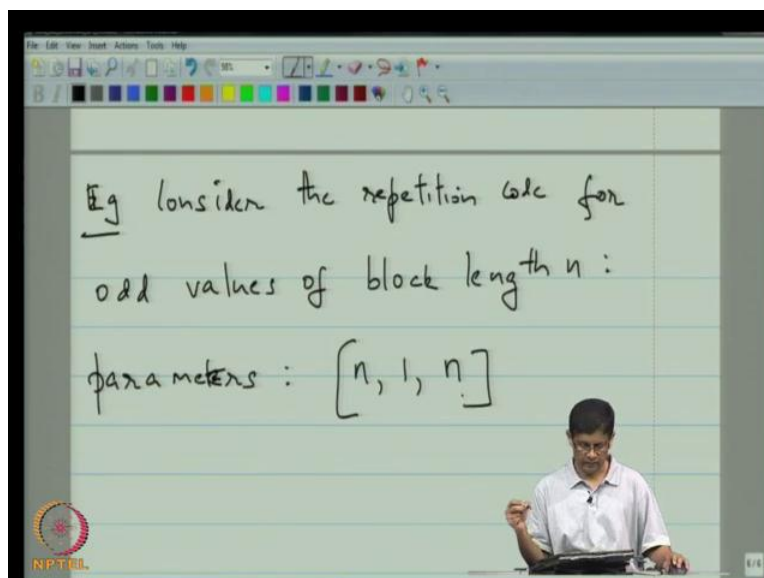 File Edit View Insert Actions Tools Help
Eg Consider the repetition code for
odd values of block length n :
parameters : [n, 1, n]
NPTEL
6/6